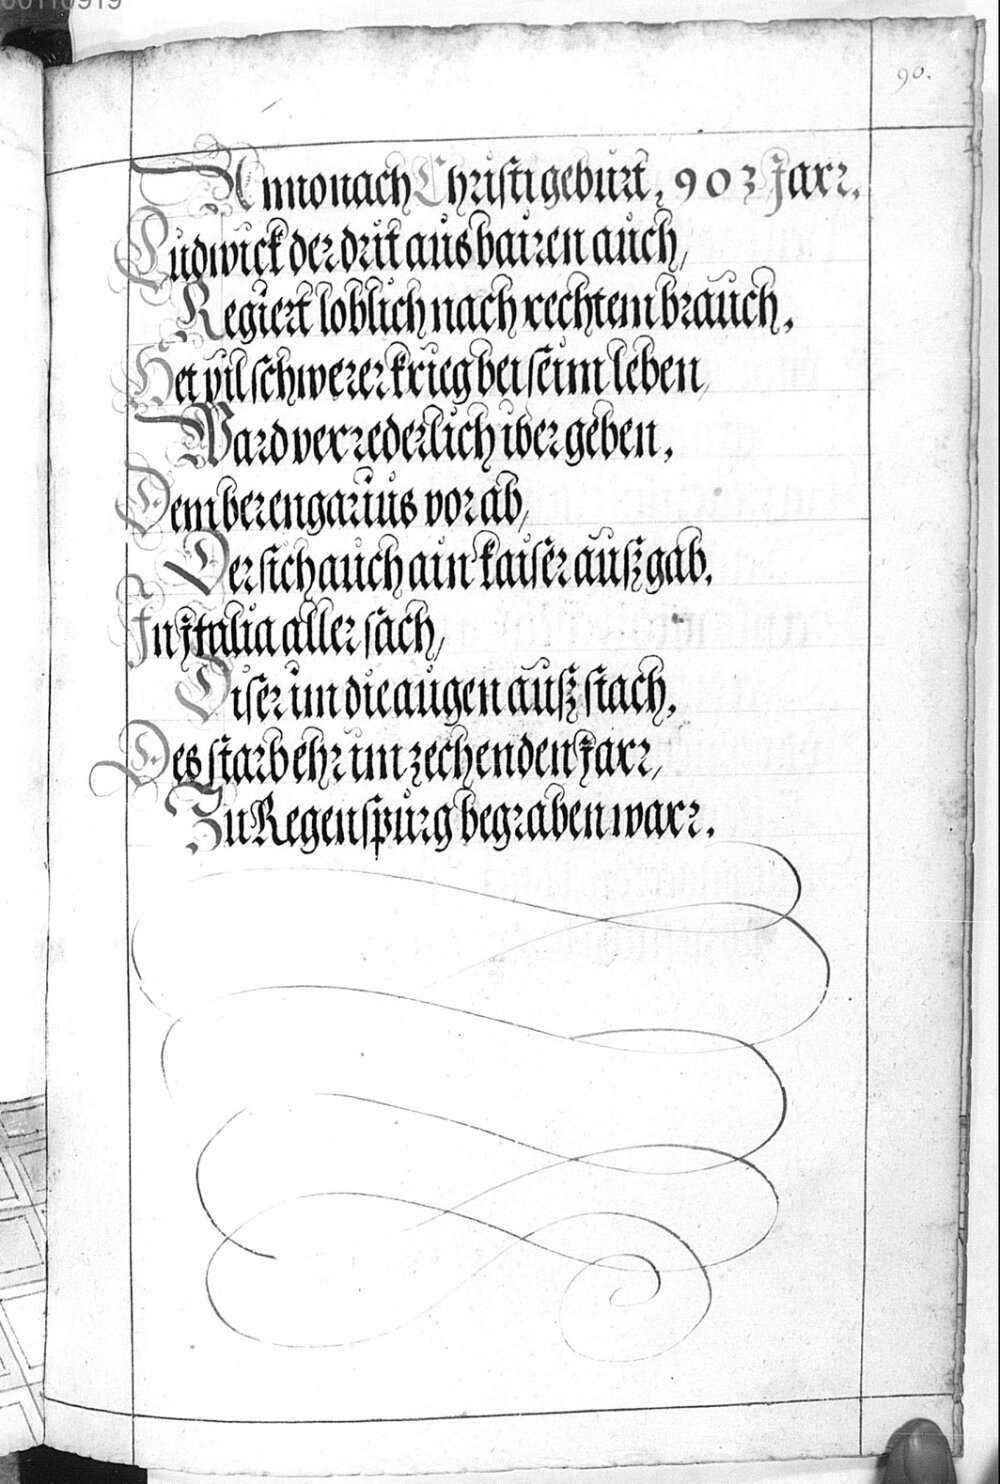 00110919
90.
Anno nach Christi geburt, 903 Jarr.
Ludwick der drit aus bairen auch,
Regiert loblich nach rechtem brauch,
Het vil schwerer krieg bei seim leben,
Ward verrederlich iber geben,
Dem berengarius vor ab,
Der sich auch ain kaiser außgab.
In Italia aller sach,
Diser im die augen auß stach,
Des starb ehr im zechenden Jarr,
Zu Regenspurg begraben warr.